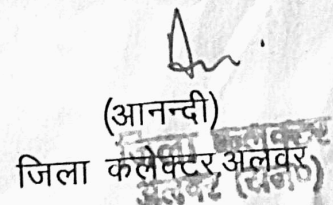 (आनन्दी)
जिला कलेक्टर,अलवर
जिला कलक्टर
अलवर (राज०)